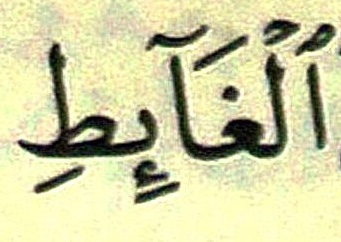 ٱلۡغَآئِطِ